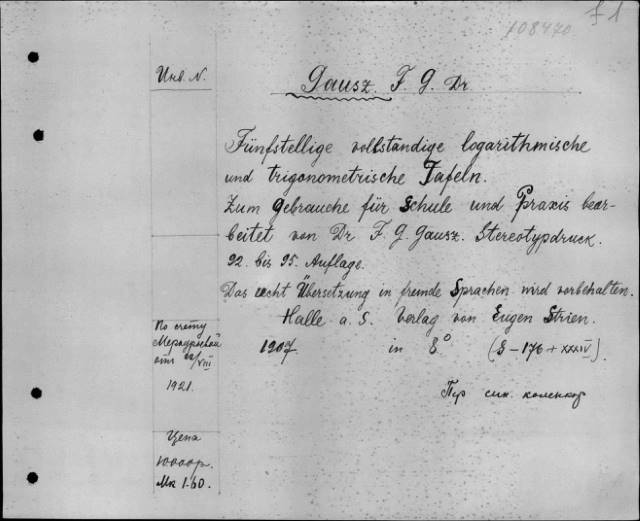 f 1
108470
Инв. N.
Gausz F. G. Dr
Fünfstellige vollständige logarithmische
und trigonometrische Tafeln.
Zum Gebrauche für Schule und Praxis bear-
beitet von Dr F. G. Gausz. Stereotypdruck.
92. bis 95. Auflage.
Das recht Übersetzung in fremde Sprachen wird vorbehalten.
Halle a. S. Verlag von Eugen Strien.
1907. in 8° (S - 176 + XXXIV).
По счету
от /VIII
1921.
Пер син. коленкор
Цена
10000р.
Мк 1-60.